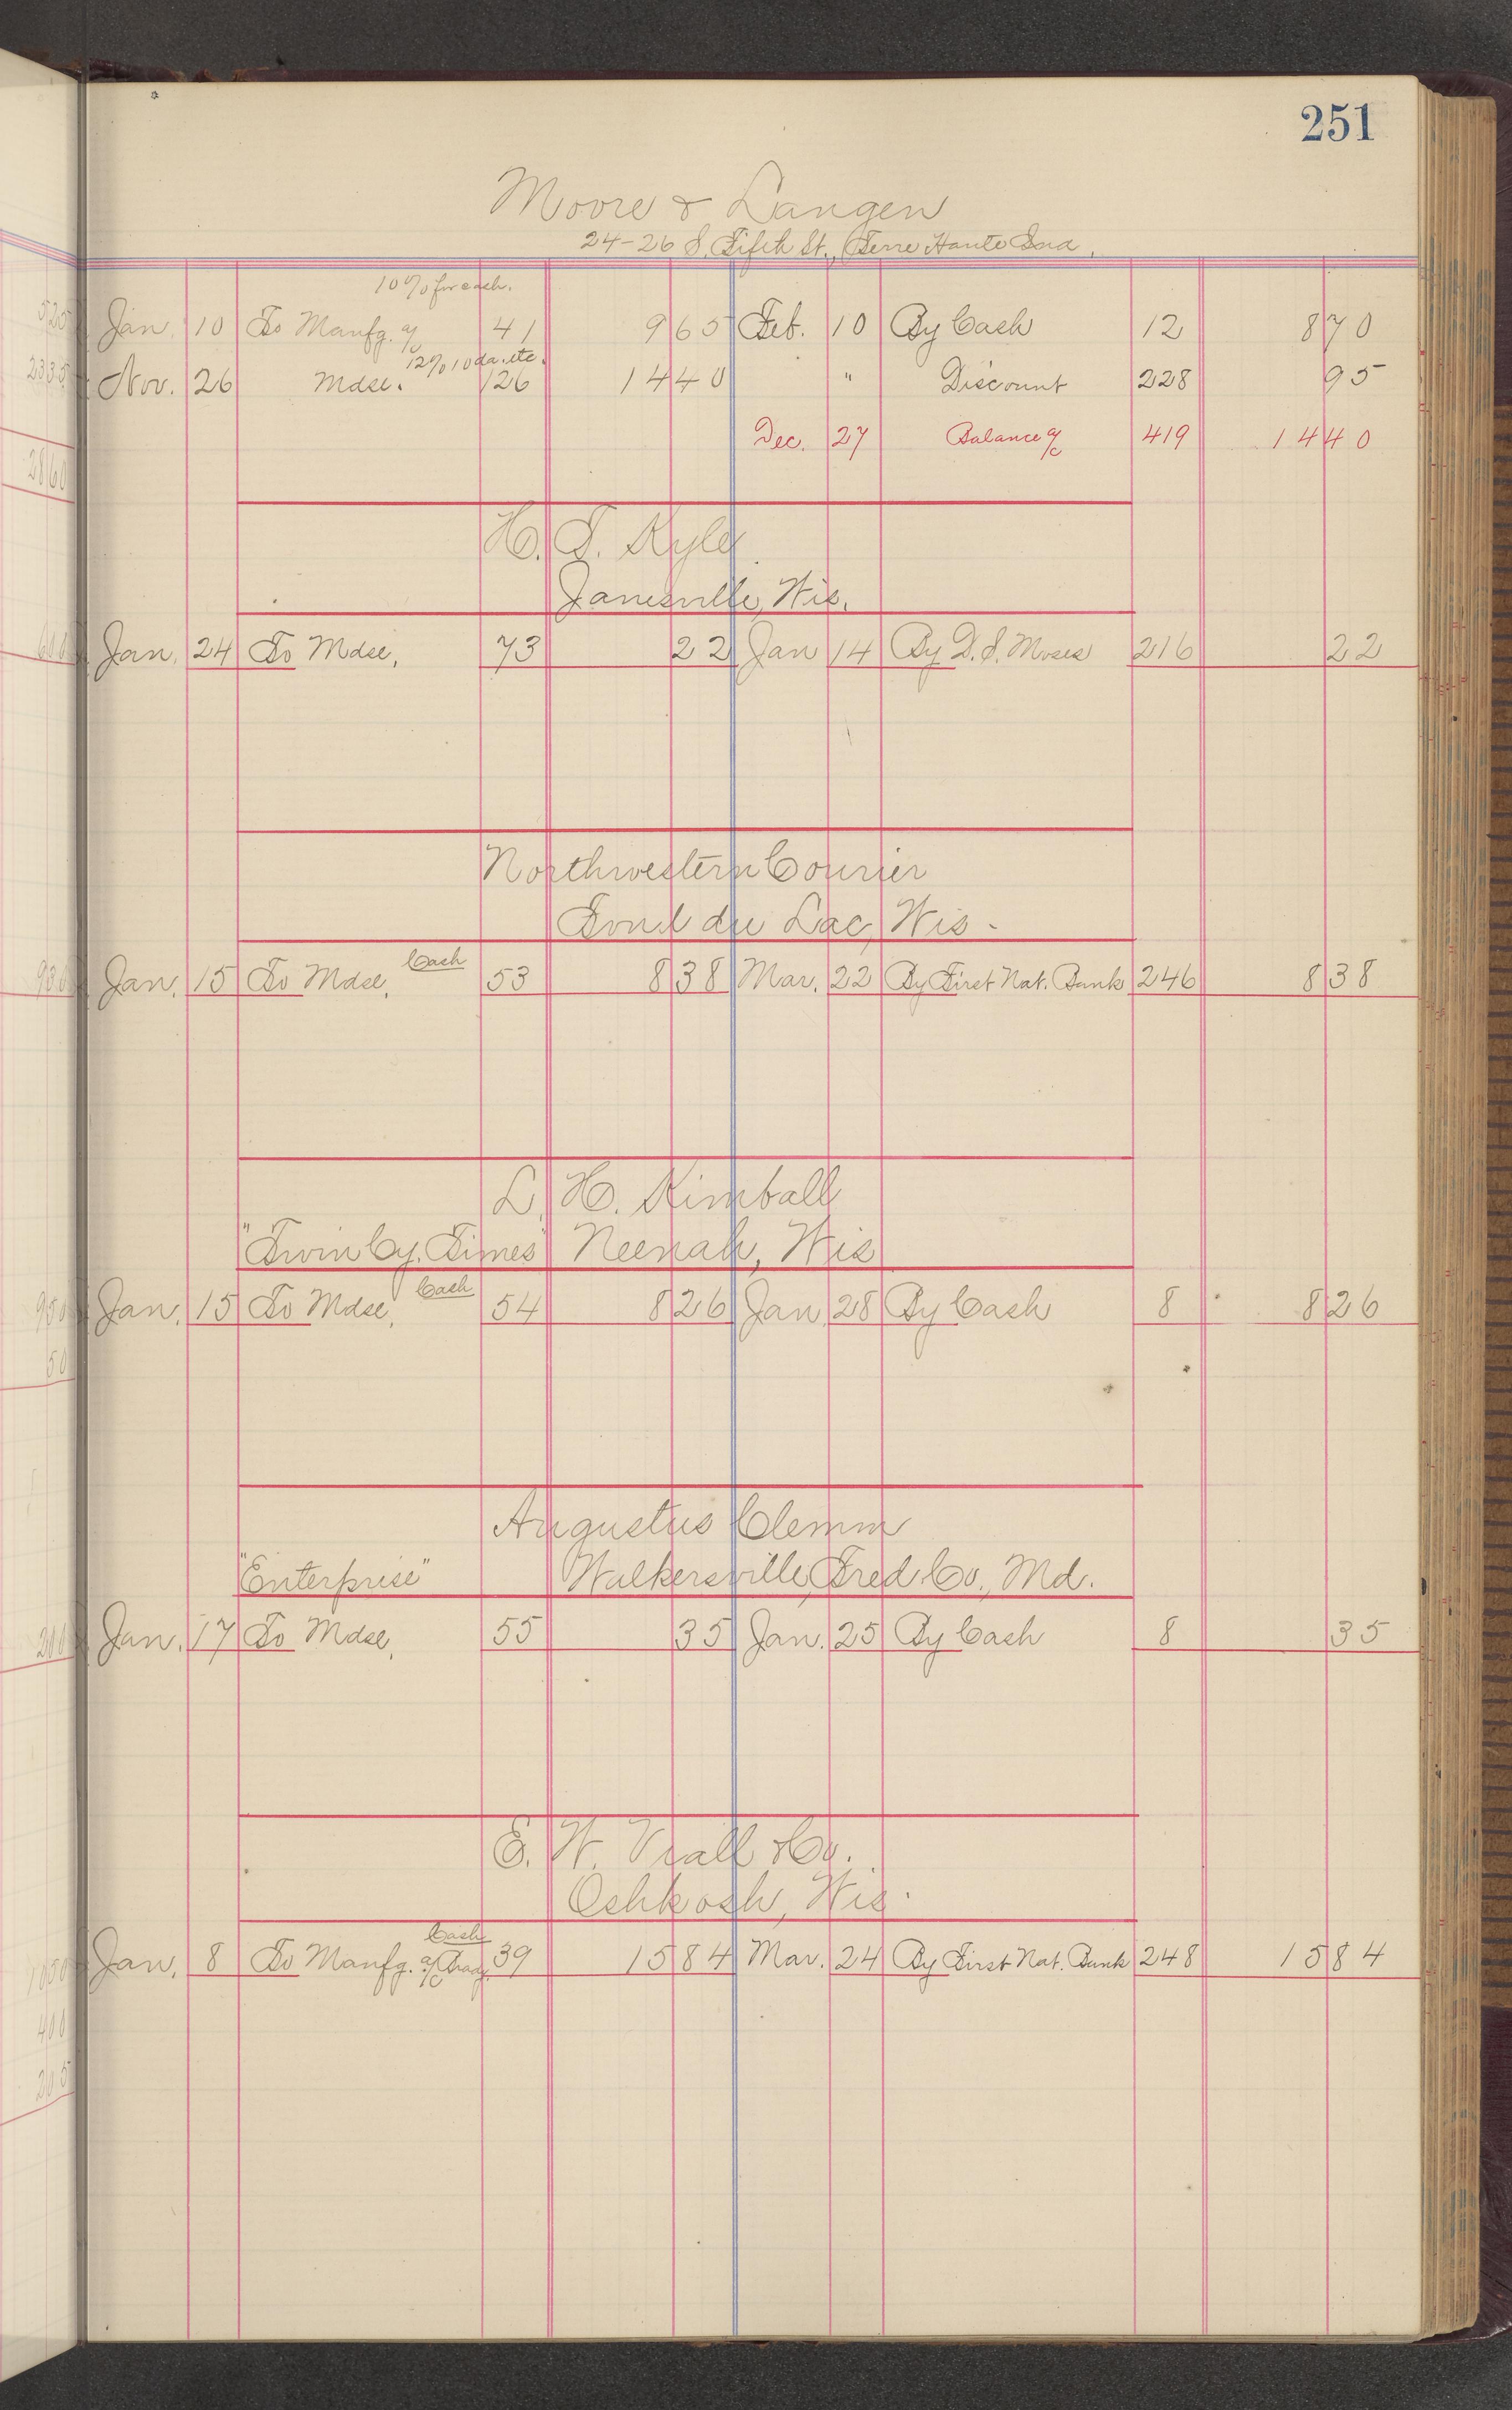 251
Moore & Langen
24-26 S. Fifth St., Terre Haute Ind.
10% for cash.
Jan. 10 To Manfg. a/c 41 9 65 Feb. 10 By Cash 12 8 70
12% 10 da. etc.
Nov. 26 Mdse. 126 14 40 " Discount 228 95
Dec. 27 Balance a/c 419 14 40
H. T. Kyle
Janesville, Wis.
Jan. 24 To Mdse, 73 22 Jan 14 By D. S. Moses 216 22
Northwestern Courier
Fond du Lac, Wis -
Cash
Jan. 15 To Mdse, 53 8 38 Mar. 22 By First Nat. Bank 246 8 38
L. H. Kimball
"Twin Cy. Times" Neenah, Wis
Cash
Jan. 15 To Mdse, 54 8 26 Jan. 28 By Cash 8 8 26
Augustus Clemm
"Enterprise" Walkersville, Fred. Co., Md.
Jan. 17 To Mdse, 55 35 Jan. 25 By Cash 8 35
E. W. Viall & Co.
Oshkosh, Wis.
Cash
Jan. 8 To Manfg. a/c 39 15 84 Mar. 24 By First Nat. Bank 248 15 84